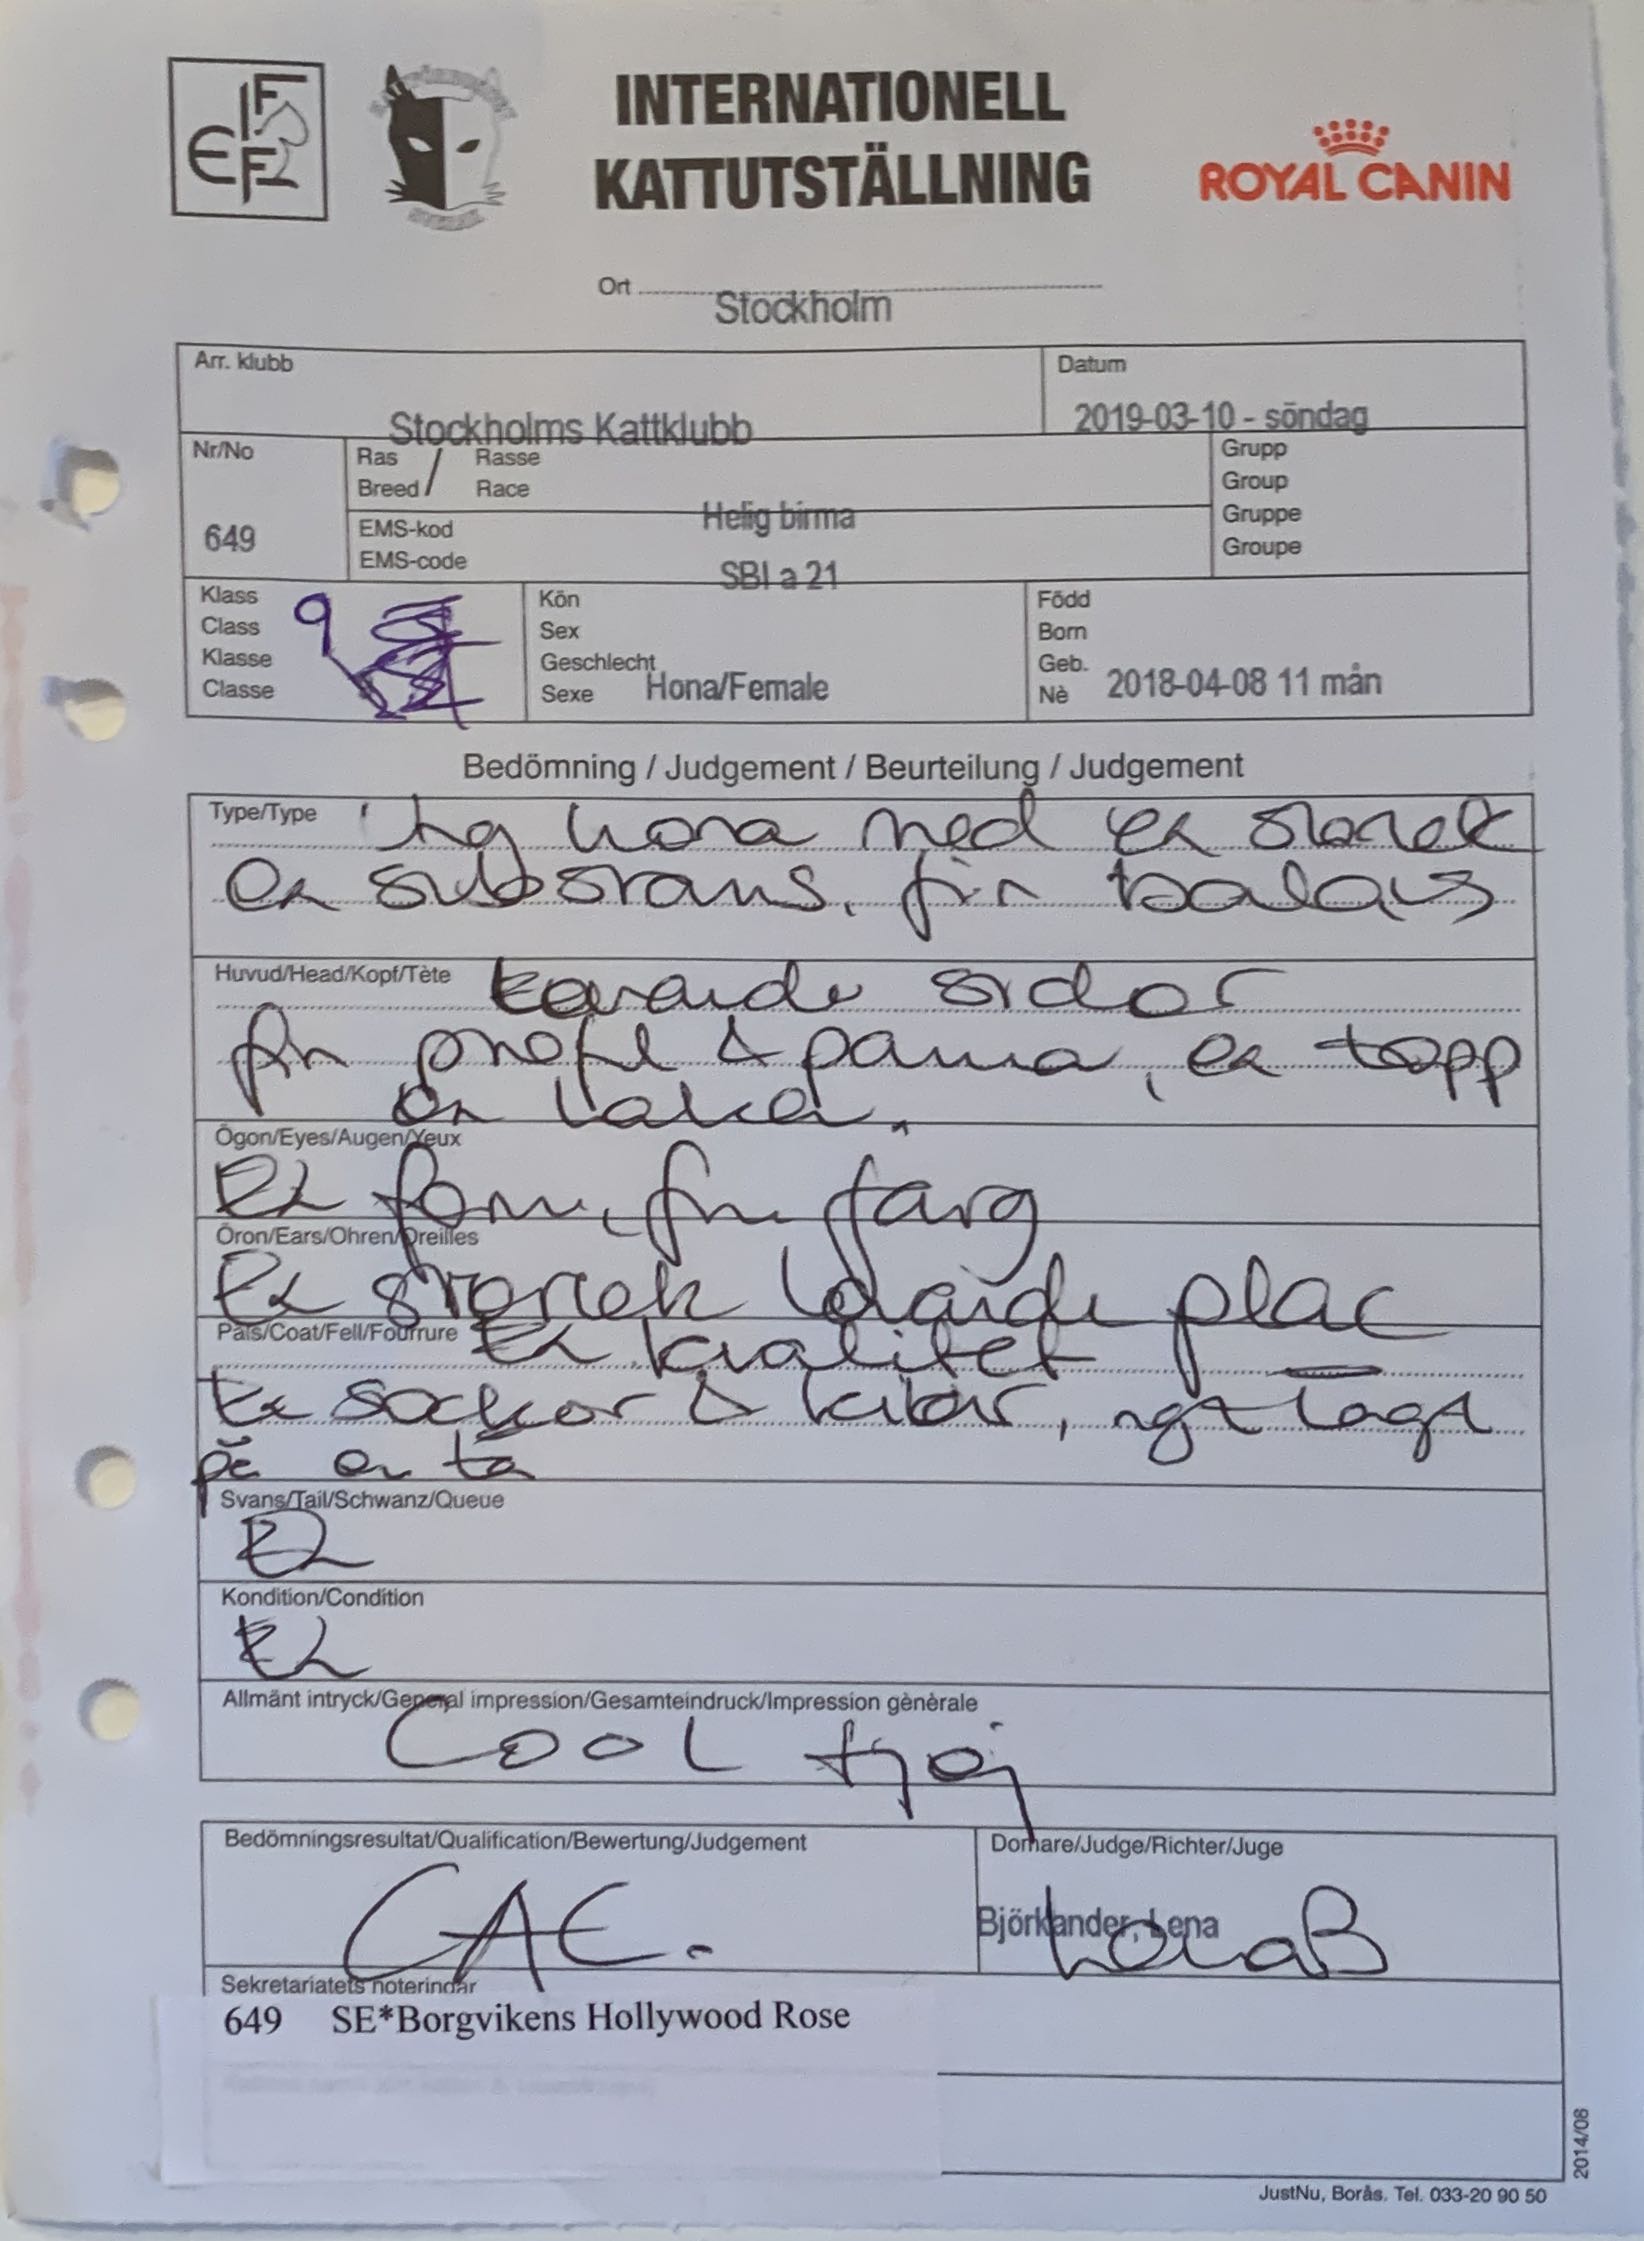 INTERNATIONELL
KATTUTSTÄLLNING
ROYAL CANIN
FIFE
Ort Stockholm
Arr. klubb
Stockholms Kattklubb
Datum
2019-03-10 - söndag
Nr/No
649
Ras / Rasse
Breed / Race
Helig birma
EMS-kod
EMS-code
SBI a 21
Grupp
Group
Gruppe
Groupe
Klass
Class
Klasse
Classe
9
Kön
Sex
Geschlecht
Sexe Hona/Female
Född
Born
Geb.
Nè 2018-04-08 11 mån
Bedömning / Judgement / Beurteilung / Judgement
Type/Type hona med ex storlek
ex substans. fin balans
Huvud/Head/Kopf/Tète sidor
fin profil & panna, ex topp
ex haka.
Ögon/Eyes/Augen/Yeux
Ex form, fin färg
Öron/Ears/Ohren/Oreilles
Ex storlek plac
Päls/Coat/Fell/Fourrure Ex kvalitet
Ex sockor & kilar, ngt lågt
på en tå
Svans/Tail/Schwanz/Queue
Ex
Kondition/Condition
Ex
Allmänt intryck/General impression/Gesamteindruck/Impression gènèrale
Cool tjej
Bedömningsresultat/Qualification/Bewertung/Judgement
CAC.
Domare/Judge/Richter/Juge
Björklander, Lena
Lena B
Sekretariatets noteringar
649 SE*Borgvikens Hollywood Rose
2014/08
JustNu, Borås. Tel. 033-20 90 50